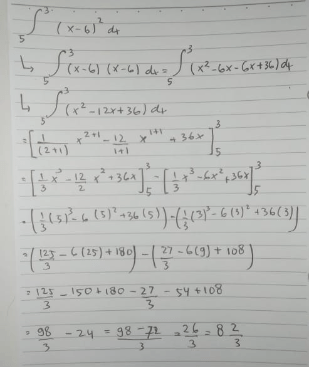 ∫₅³ (x-6)² dx
↳ ∫₅³ (x-6) (x-6) dx = ∫₅³ (x²-6x-6x+36) dx
↳ ∫₅³ (x²-12x+36) dx
= [1/(2+1) x²⁺¹ - 12/1+1 x¹⁺¹ + 36x]₅³
= [1/3 x³ - 12/2 x² + 36x]₅³ - [1/3 x³ - 6x² + 36x]₅³
= (1/3 (5)³ - 6 (5)² + 36 (5)) - (1/3 (3)³ - 6 (3)² + 36 (3))
= (125/3 - 6 (25) + 180) - (27/3 - 6(9) + 108)
= 125/3 - 150 + 180 - 27/3 - 54 + 108
= 98/3 - 24 = 98 - 72/3 = 26/3 = 8 2/3